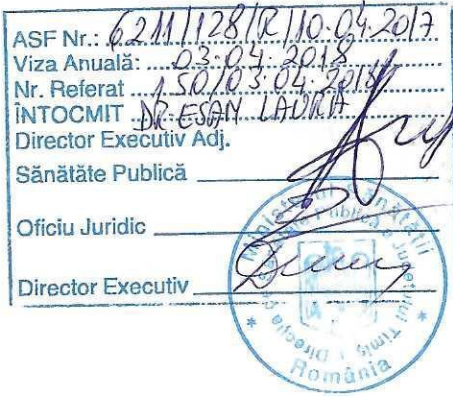 ASF Nr.: 6211/128/R/10.04.2017
Viza Anuală: 03.04.2018
Nr. Referat 150/03.04.2018
ÎNTOCMIT DR. ESAN LAURA
Director Executiv Adj.
Sănătăte Publică
Oficiu Juridic
Director Executiv
Ministerul Sănătății
Direcția de Sănătate Publică a Județului Timiș
România